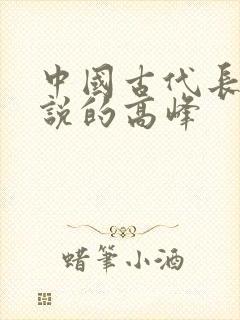 中國古代長
說的高峰
蜡筆小酒